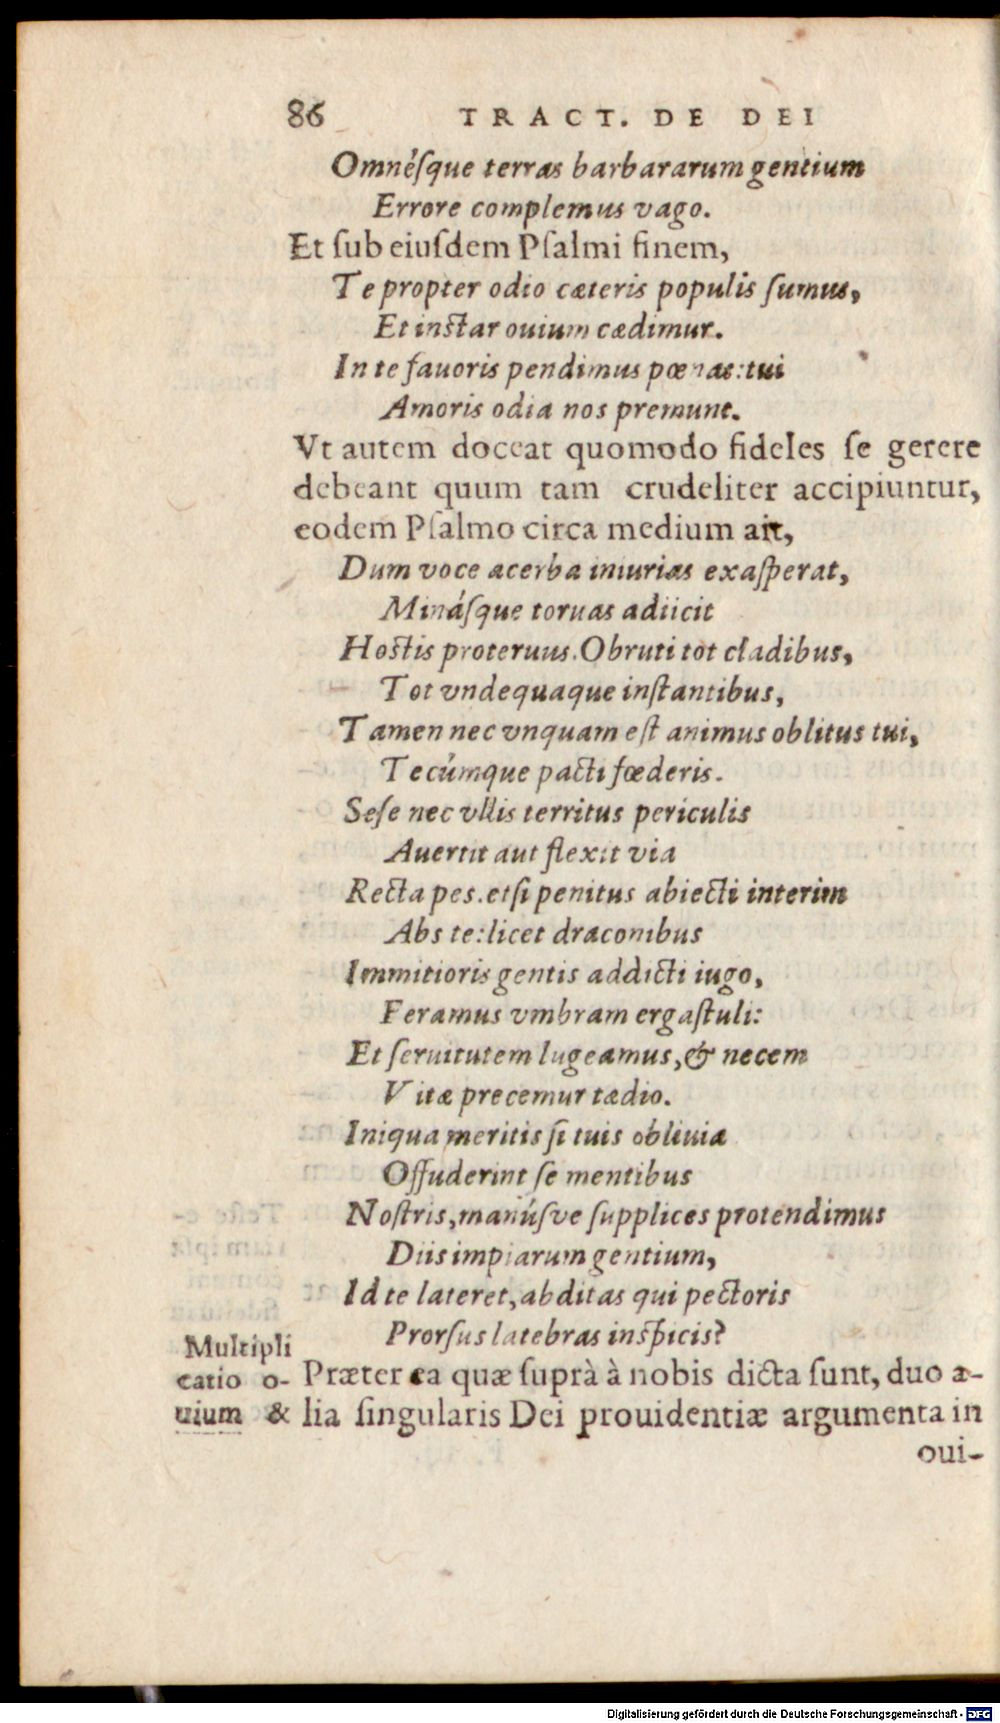 86 TRACT. DE DEI
Omnésque terras barbararum gentium
Errore complemus vago.
Et sub eiusdem Psalmi finem,
Te propter odio cæteris populis sumus,
Et instar ouium cædimur.
In te fauoris pendimus pœnas: tui
Amoris odia nos premunt.
Vt autem doceat quomodo fideles se gerere
debeant quum tam crudeliter accipiuntur,
eodem Psalmo circa medium ait,
Dum voce acerba iniurias exasperat,
Minásque toruas adiicit
Hostis proteruus. Obruti tot cladibus,
Tot vndequaque instantibus,
Tamen nec vnquam est animus oblitus tui,
Tecúmque pacti fœderis.
Sese nec vllis territus periculis
Auertit aut flexit via
Recta pes. etsi penitus abiecti interim
Abs te: licet draconibus
Immitioris gentis addicti iugo,
Feramus vmbram ergastuli:
Et seruitutem lugeamus, & necem
Vitæ precemur tædio.
Iniqua meritis si tuis obliuia
Offuderint se mentibus
Nostris, manúsve supplices protendimus
Diis impiarum gentium,
Id te lateret, abditas qui pectoris
Prorsus latebras inspicis?
Multipli
catio o-
uium &
Præter ea quæ suprà à nobis dicta sunt, duo a-
lia singularis Dei prouidentiæ argumenta in
oui-
Digitalisierung gefördert durch die Deutsche Forschungsgemeinschaft - DFG